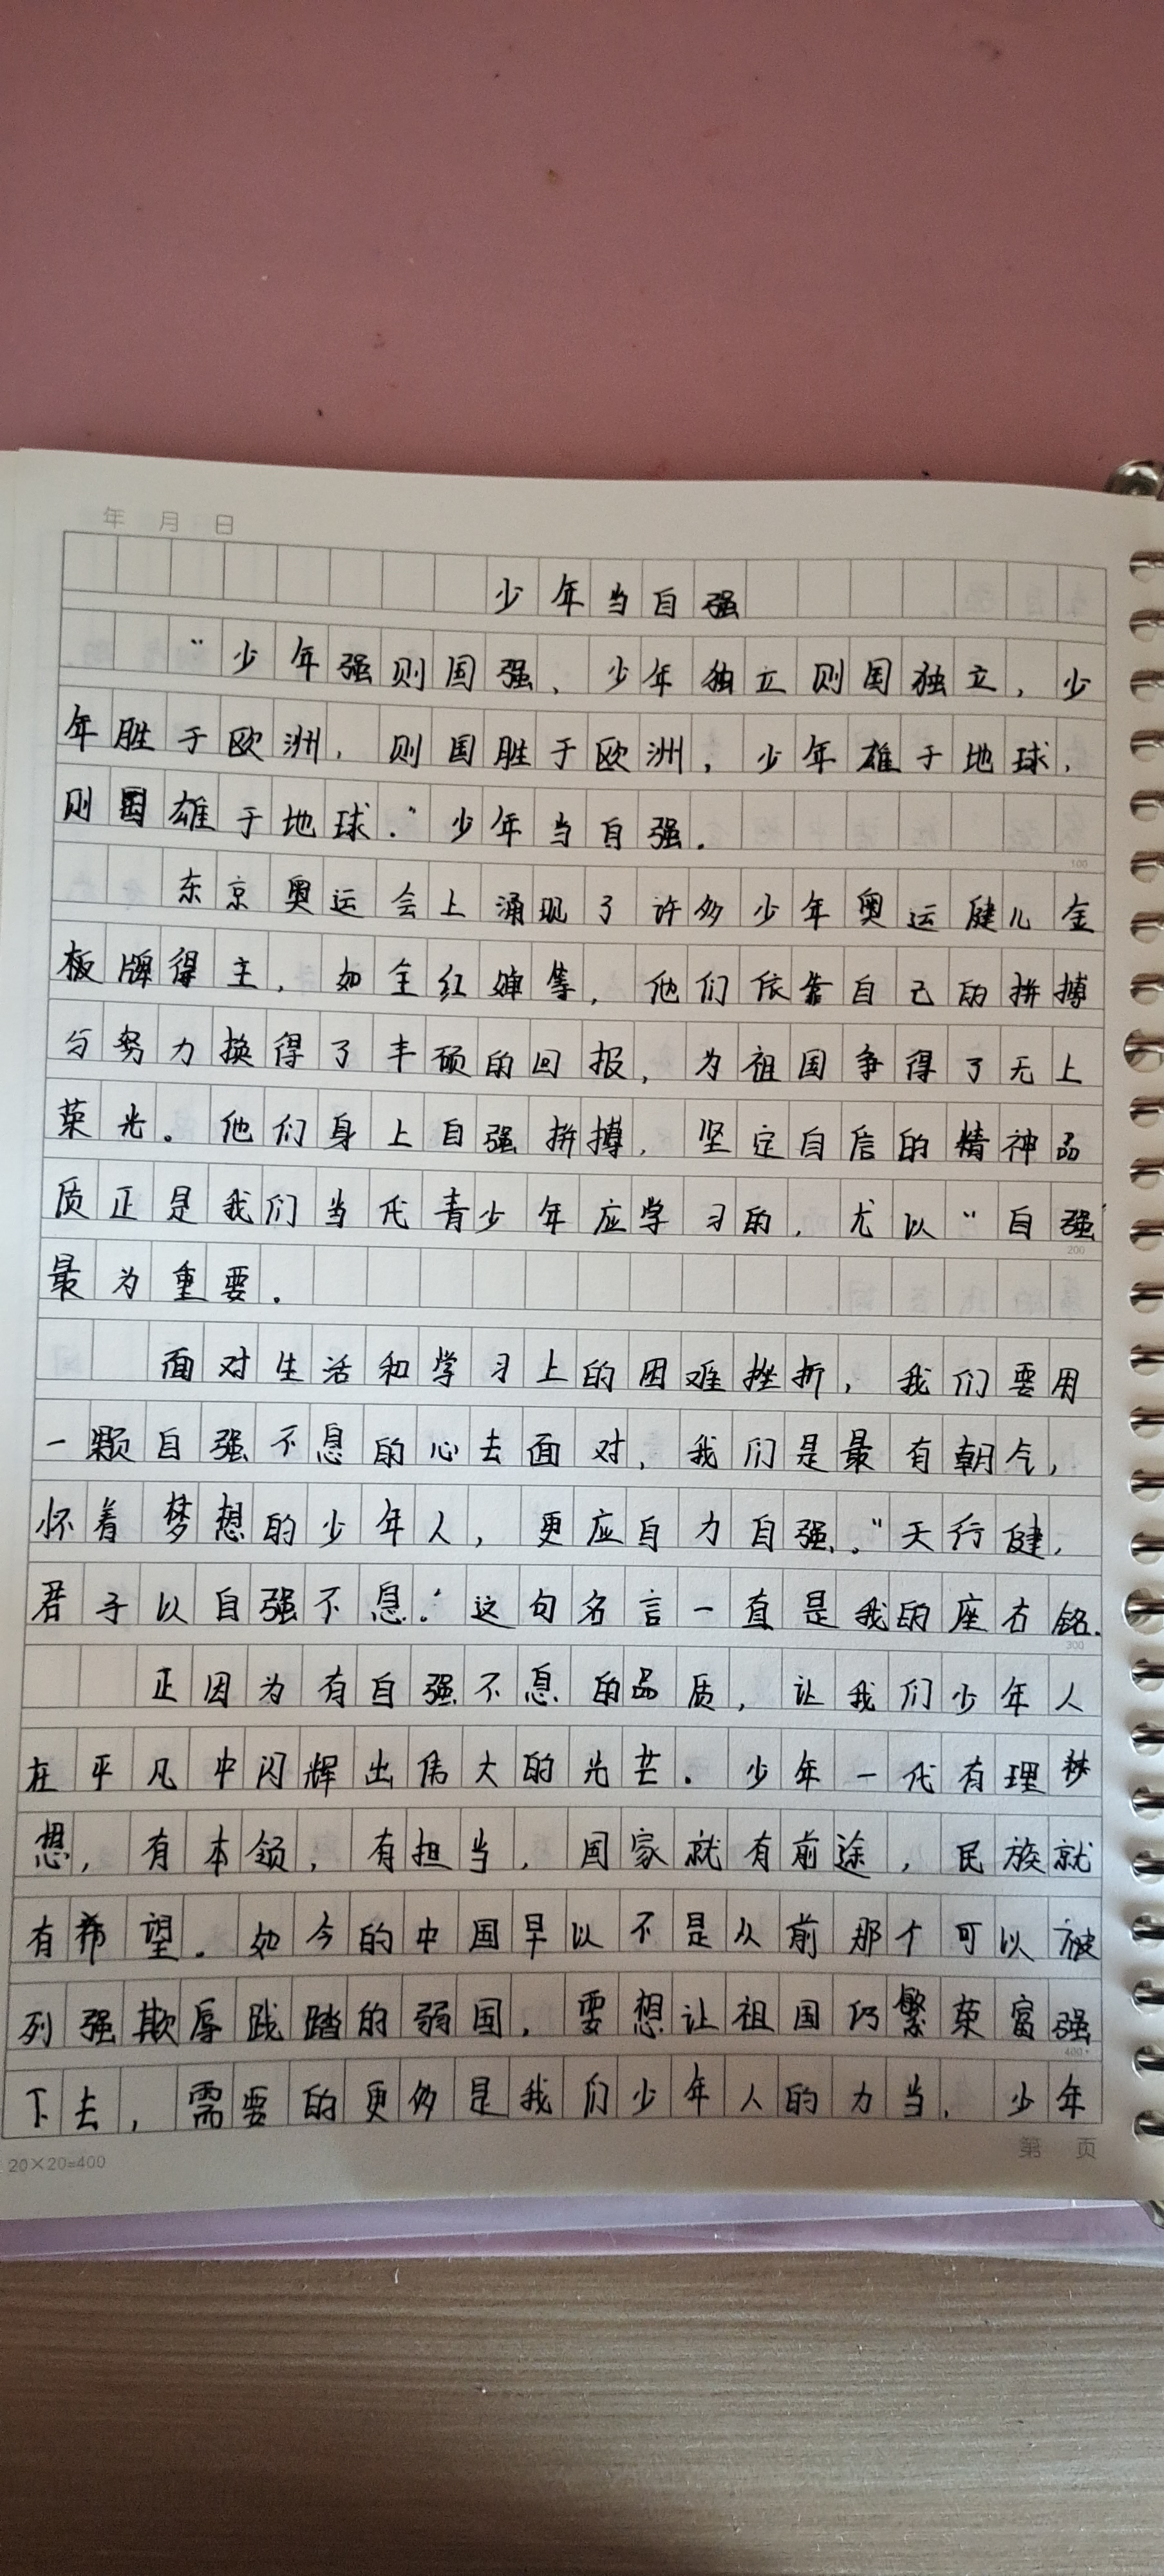 年 月 日
少年当自强
“少年强则国强，少年独立则国独立，少
年胜于欧洲，则国胜于欧洲，少年雄于地球，
则国雄于地球.”少年当自强.
100
东京奥运会上涌现了许多少年奥运健儿金
板牌得主，如全红婵等，他们依靠自己的拼搏
与努力换得了丰硕的回报，为祖国争得了无上
荣光。他们身上自强拼搏，坚定自信的精神品
质正是我们当代青少年应学习的，尤以“自强”
200
最为重要.
面对生活和学习上的困难挫折，我们要用
一颗自强不息的心去面对，我们是最有朝气，
怀着梦想的少年人，更应自力自强.“天行健，
君子以自强不息.”这句名言一直是我的座右铭.
300
正因为有自强不息的品质，让我们少年人
在平凡中闪辉出伟大的光芒.少年一代有理
想，有本领，有担当，国家就有前途，民族就
有希望.如今的中国早以不是从前那个可以被
列强欺辱践踏的弱国，要想让祖国仍繁荣富强
400
下去，需要的更多是我们少年人的力当，少年
20×20=400
第 页